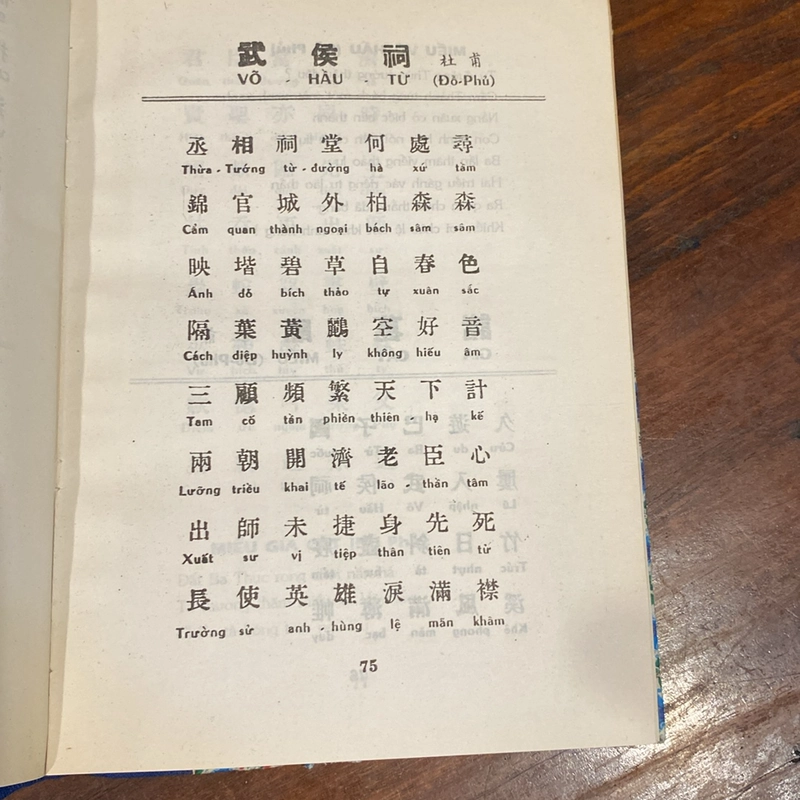 武侯祠 杜甫
VÕ - HẦU - TỪ (Đỗ-Phủ)
丞相祠堂何處尋
Thừa-Tướng từ-đường hà xứ tầm
錦官城外柏森森
Cẩm quan thành ngoại bách sâm sâm
映堦碧草自春色
Ánh dỏ bích thảo tự xuân sắc
隔葉黃鸝空好音
Cách diệp huỳnh ly không hiếu âm
三顧頻繁天下計
Tam cố tần phiền thiên-hạ kế
兩朝開濟老臣心
Lưỡng triều khai tế lão-thần tâm
出師未捷身先死
Xuất sư vị tiệp thân tiên tử
長使英雄淚滿襟
Trường sử anh-hùng lệ mãn khâm
75